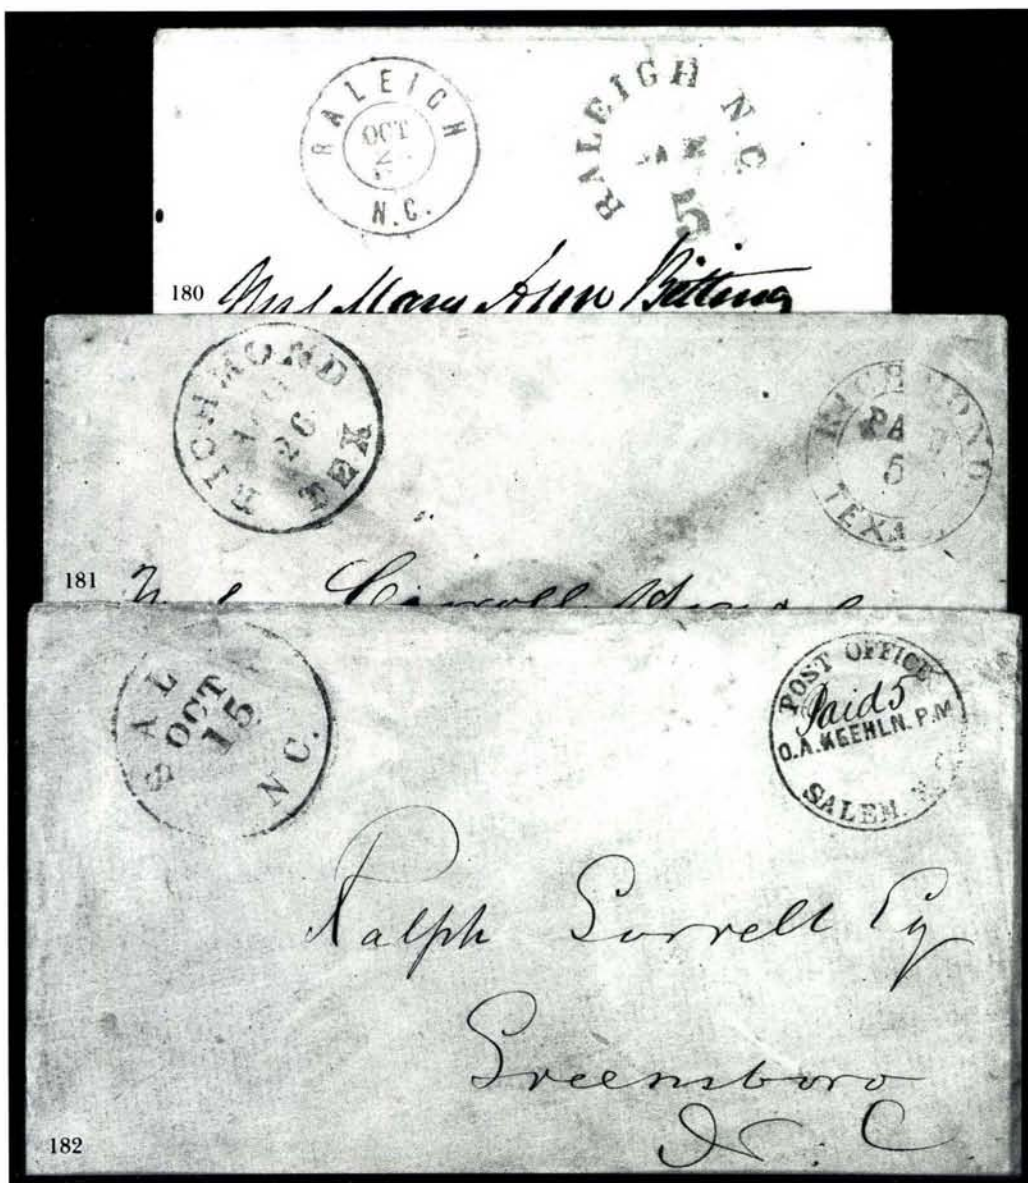 RALEIGH
OCT
N.C.
RALEIGH N.C.
5
180
Mary Ann Bitting
RICHMOND
26
TEX
RICHMOND
PAID
5
TEXAS
181
Carroll
SAL
OCT
15
N C.
POST OFFICE
Paid 5
O.A.KEEHLN. P.M
SALEM. N.C.
Ralph Sorrell Eq
Greensboro
N. C
182